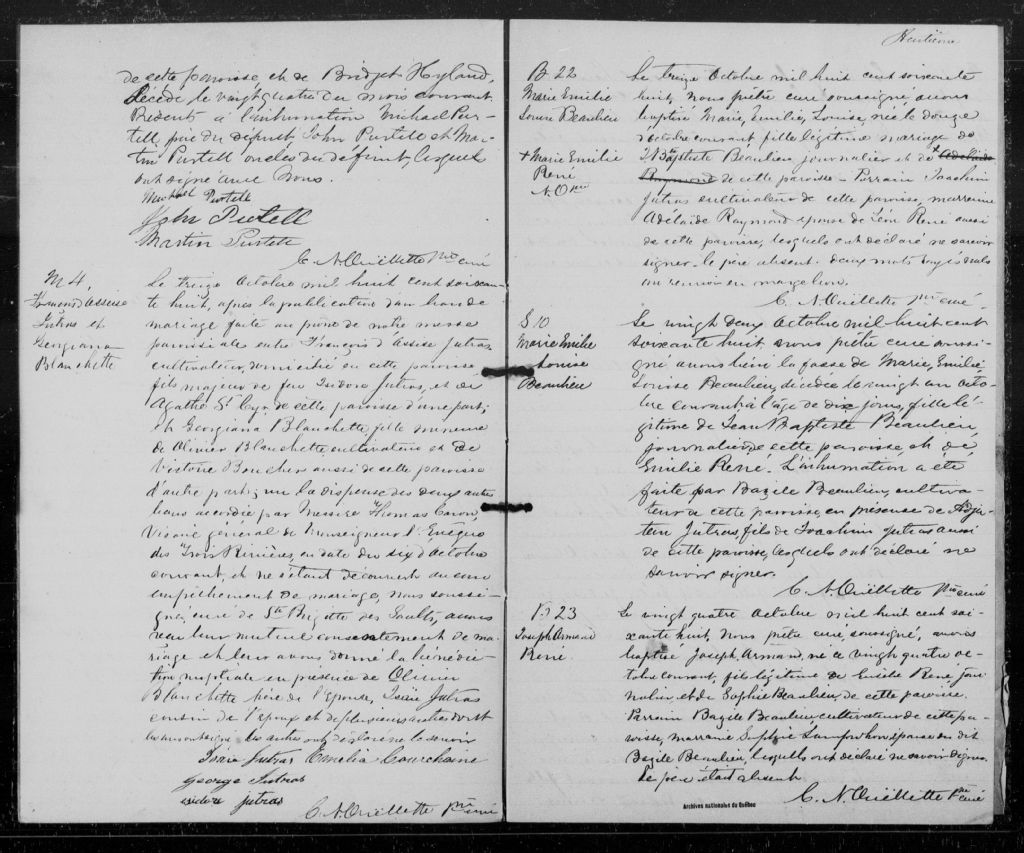 de cette paroisse et de Bridget Hyland,
décédé le vingt quatre du mois courant.
Présents à l'inhumation Michael Pur-
tell, père du défunt, John Purtell et Mar-
tin Purtell oncles du défunt, lesquels
ont signé avec nous.
Michael Purtell
John Purtell
Martin Purtell
C. N. Ouëllette Ptre curé
M 4.
François d'Assise
Jutras et
Georgiana
Blanchette
Le treize Octobre mil huit cent soixan-
te huit, après la publication d'un ban de
mariage faite au prône de notre messe
paroissiale entre François d'Assise Jutras,
cultivateur, domicilié en cette paroisse
fils majeur de feu Isidore Jutras, et de
Agathe St Cyr de cette paroisse d'une part;
et Georgiana Blanchette, fille mineure
de Olivier Blanchette cultivateur et de
Victoire Boucher aussi de cette paroisse
d'autre part; vu la dispense des deux autres
bans accordée par Messire Thomas Caron,
Vicaire général de Monseigneur l'Evêque
des Trois Rivières, en date du six d'Octobre
courant, et ne s'étant découvert aucun
empêchement de mariage, nous soussi-
gné, curé de Ste Brigitte des Saults, avons
reçu leur mutuel consentement de ma-
riage et leur avons donné la bénédic-
tion nuptiale en présence de Olivier
Blanchette père de l'Epouse, Isaïe Jutras
cousin de l'Epoux et de plusieurs autres dont
les uns ont signé les autres ont déclaré ne le savoir
Isaie Jutras Emelia Courchaine
george Jutras
isidore jutras
C. N. Ouëllette Ptre curé
Huitième
B 22
Marie Emilie
Louise Beaulieu
+ Marie Emilie
René
N. O ptre
Le treize Octobre mil huit cent soixante
huit, nous prêtre curé soussigné avons
baptisé Marie, Emilie, Louise, née le douze
d'octobre courant, fille légitime mariage de
J. Bte Baptiste Beaulieu, journalier et de + Adelaïde
Raymond de cette paroisse - Parrain Joachim
Jutras cultivateur de cette paroisse, marraine
Adélaïde Raymond épouse de Léon René aussi
de cette paroisse, lesquels ont déclaré ne savoir
signer. le père absent. deux mots rayés nuls
un renvoi en marge bon.
C. N. Ouëllette ptre curé
S 10
Marie Emilie
Louise
Beaulieu
Le vingt deux Octobre mil huit cent
soixante huit nous prêtre curé soussi-
gné avons béni la fosse de Marie, Emilie,
Louise Beaulieu, décédée le vingt un octo-
bre courant à l'âge de dix jours, fille lé-
gitime de Jean Baptiste Beaulieu,
journalier de cette paroisse et de
Emilie René. L'inhumation a été
faite par Bazile Beaulieu, cultiva-
teur de cette paroisse, en présense de
Jutras, fils de Joachim Jutras aussi
de cette paroisse, lesquels ont déclaré ne
savoir signer.
C. N. Ouëllette Ptre curé
B 23
Joseph Armand
René.
Le vingt quatre Octobre mil huit cent soi-
xante huit, Nous prêtre curé, soussigné, avons
baptisé Joseph, Armand, né ce vingt quatre oc-
tobre courant, fils légitime de Eusèbe René, jour
nalier, et de Sophie Beaulieu, de cette paroisse.
Parrain Bazile Beaulieu cultivateur de cette pa-
roisse, marraine Sophie épouse du dit
Bazile Beaulieu, lesquels ont déclaré ne savoir signer.
Le père était absent.
C. N. Ouëllette Ptre curé
Archives nationales du Québec